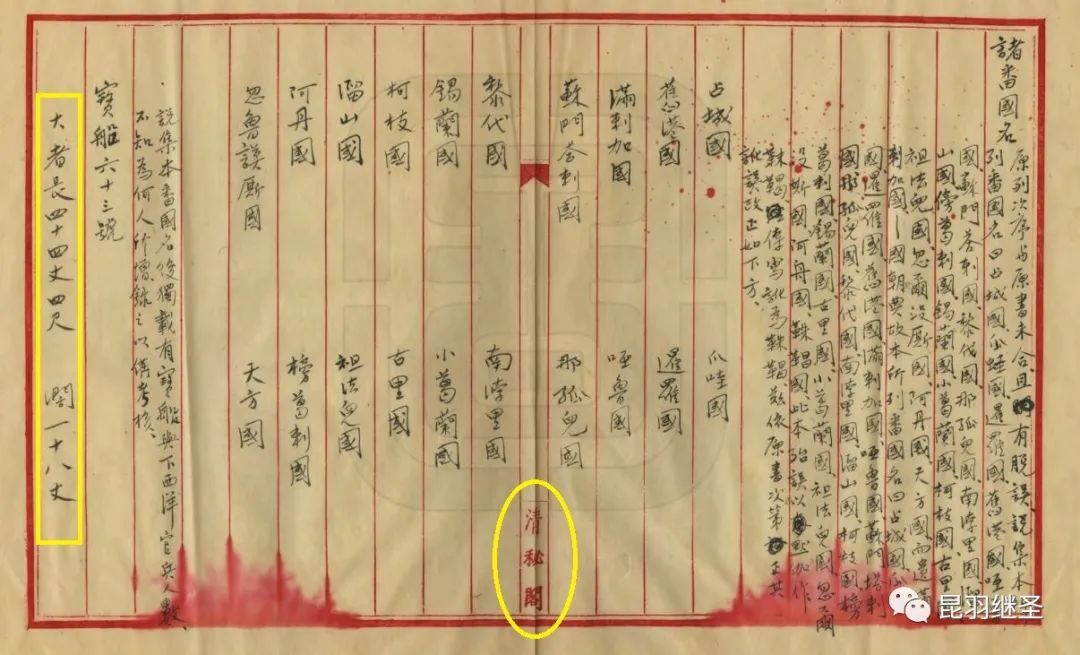 諸番國名
原列次序与原書未合且有脱誤説集本
列番國名曰占城國瓜蛙國暹羅國舊港國啞
國蘇門荅剌國黎代國那孤兒國南浡里國
山國傍葛剌國錫蘭國小葛蘭國柯枝國古里
祖法兒國忽爾沒厮國阿丹國天方國而遺
剌加國一國朝典故本所列番國名曰占城國
國暹羅國舊港國滿剌加國啞魯國蘇門塔剌
國那孤兒國黎代國南浡里國溜山國柯枝國榜
葛剌國錫蘭國古里國小葛蘭國祖法兒國忽
没斯國阿丹國靺鞨國此本殆誤以默伽作
靺鞨傳寫訛為靺鞨茲依原書次第正其
訛誤改正如下方
占城國 瓜哇國
舊港國 暹羅國
滿剌加國 啞魯國
蘇門荅剌國 那孤兒國
清秘閣
黎代國 南浡里國
錫蘭國 小葛蘭國
柯枝國 古里國
溜山國 祖法兒國
阿丹國 榜葛剌國
忽魯謨厮國 天方國
説集本番國名後獨載有寶船與下西洋官兵人數
不知為何人所增錄之以備考核
寶船六十三號
大者長四十四丈四尺 濶一十八丈
昆羽继圣